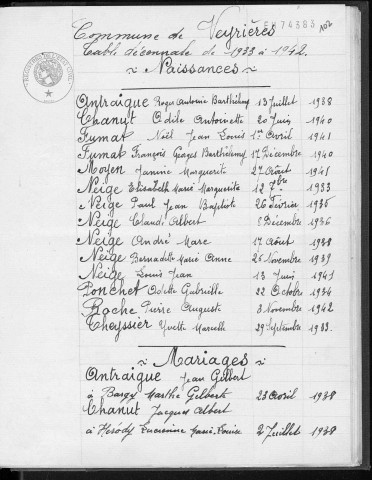 EM74383
102
Commune de Veyrières
Table décennale de 1933 à 1942.
Naissances
Antraigue Roger Antoine Barthélemy 13 Juillet 1938
Chanut Odile Antoinette 20 Juin 1940
Fumat Noël Jean Louis 1er Avril 1941
Fumat François Georges Barthélemy 17 Décembre 1940
Moyen Janine Marguerite 27 Août 1941
Neige Elisabeth Marie Marguerite 12 7bre 1933
Neige Paul Jean Baptiste 26 Février 1935
Neige Claude Albert 8 Décembre 1936
Neige André Marc 17 Août 1938
Neige Bernadette Marie Anne 26 Novembre 1939
Neige Louis Jean 13 Juin 1941
Ponchet Odette Gabrielle 22 Octobre 1934
Roche Pierre Auguste 3 Novembre 1942
Theyssier Yvette Marcelle 29 Septembre 1933.
Mariages
Antraigue Jean Gilbert
à Bargy Marthe Gilbert 23 Avril 1938
Chanut Jacques Albert
à Marie Louise 2 Juillet 1938